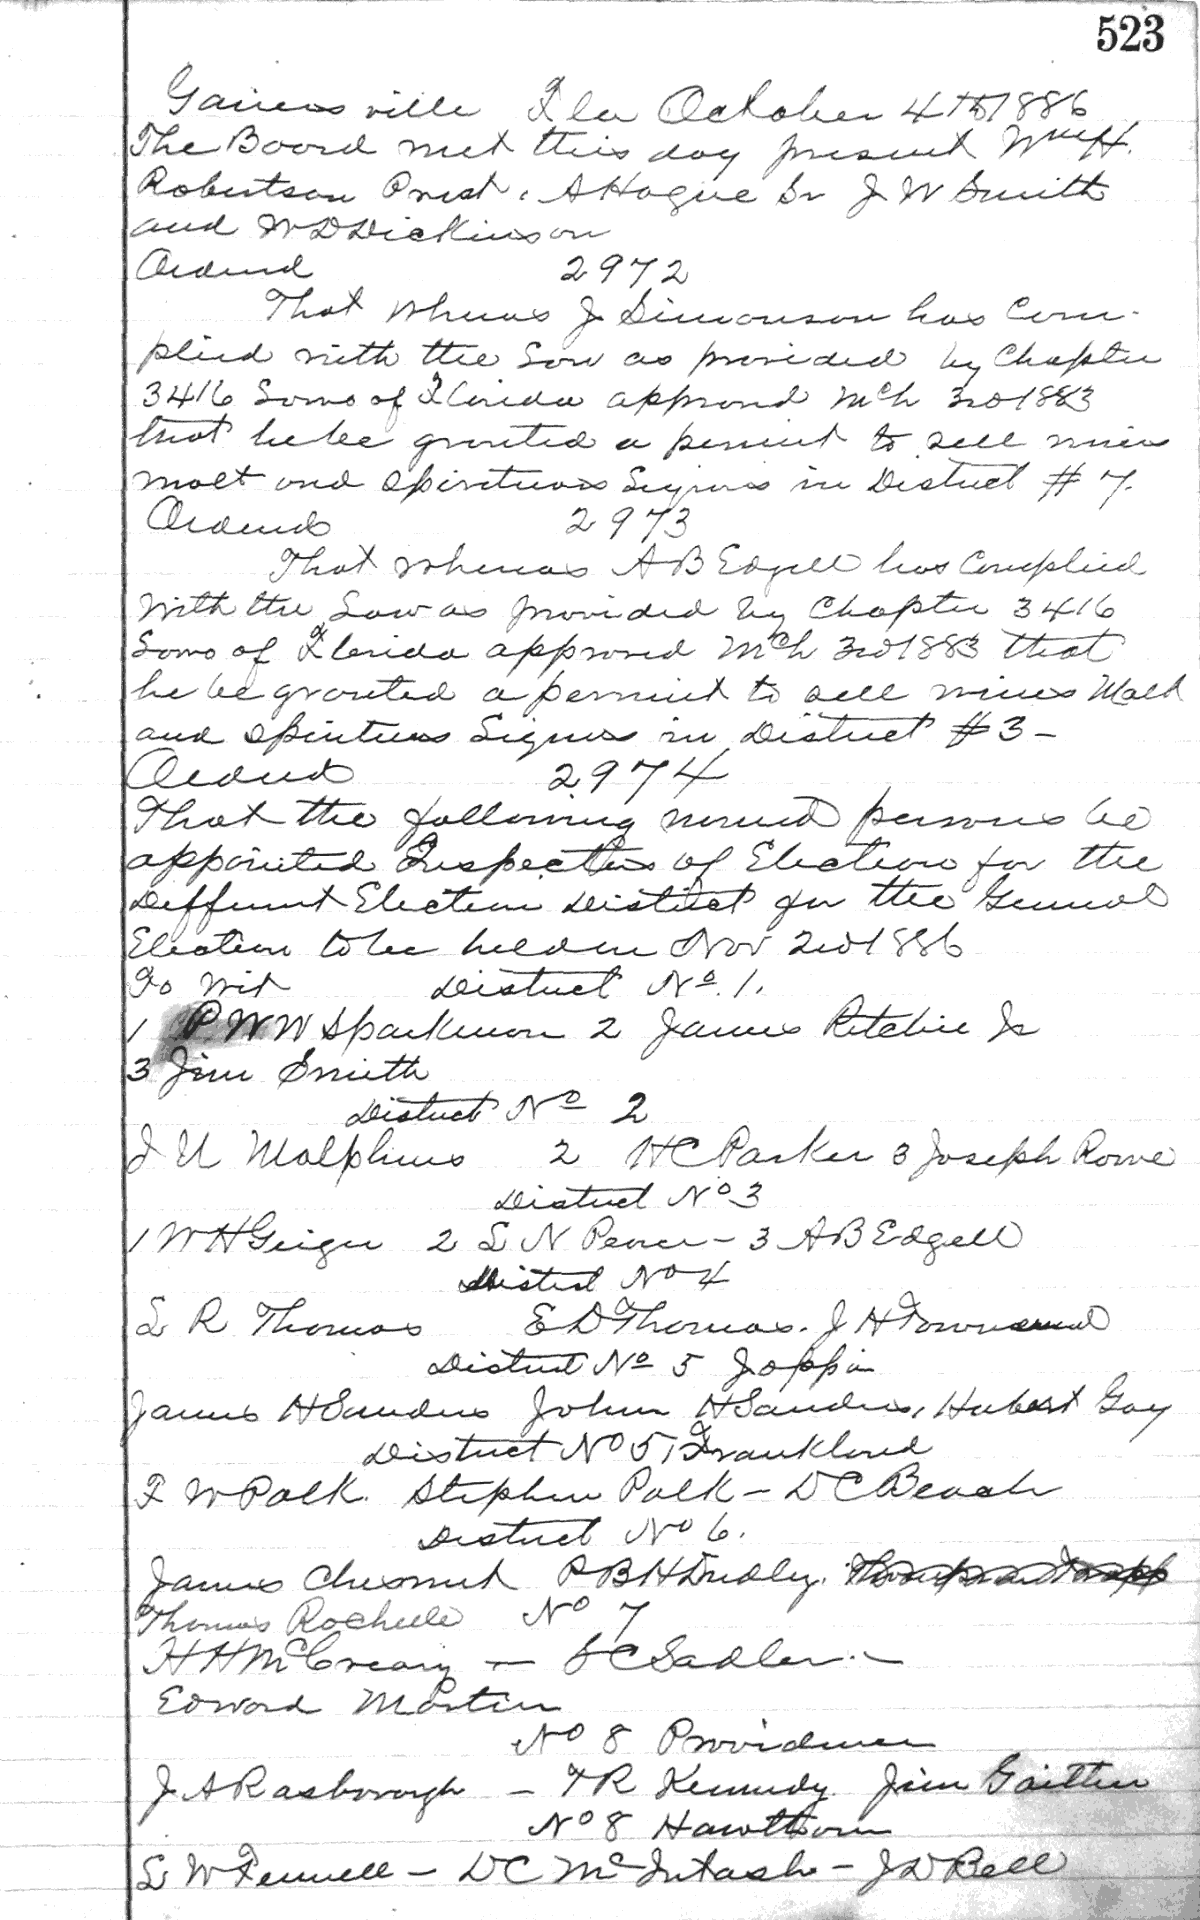 523
Gainesville Fla October 4th 1886
The Board met this day present Wm H.
Robertson Prest. A Hague Sr J W Smith
and W D Dickinson
Ordered 2972
That whereas J Simonson has Com-
plied with the Law as provided by Chapter
3416 Laws of Florida approved Mch 3rd 1883
that he be granted a permit to sell wines
malt and Spirituous Liquors in District # 7.
Ordered 2973
That whereas A B Edgell has Complied
with the Law as provided by Chapter 3416
Laws of Florida approved Mch 3rd 1883 that
he be granted a permit to sell wines Malt
and Spirituous Liquors in District #3 -
Ordered 2974
That the following named persons be
appointed Inspectors of Election for the
Different Election District for the General
Election to be held on Nov 2nd 1886
To Wit District No. 1.
1 P W W Sparkman 2 James Ritchie Jr
3 Jim Smith
District No 2
J U Malphurs 2 H C Parker 3 Joseph Rowe
District No 3
1 W H Geiger 2 L N Perer - 3 A B Edgell
District No 4
L R Thomas E D Thomas. J H Townsend
District No 5 Joppa
James H Sanders John H Sanders, Hubert Gay
District No 5, Frankland
F W Polk. Stephen Polk - D C Beach
District No 6.
James Chesnut P B H Dudley.
Thomas Rochelle No 7
H H McCreary - C Sadler. -
Edward Martin
No 8 Providence
J A Rasborough - T R Kennedy. Jim Gaitten
No 8 Hawthorn
L W Fennell - D C McIntash - J D Bell